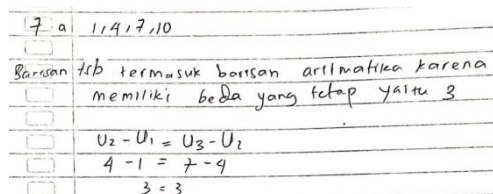 7 a 1,4,7,10
Barisan tsb termasuk barisan aritmatika karena
memiliki beda yang tetap yaitu 3
U2 - U1 = U3 - U2
4 - 1 = 7 - 4
3 = 3